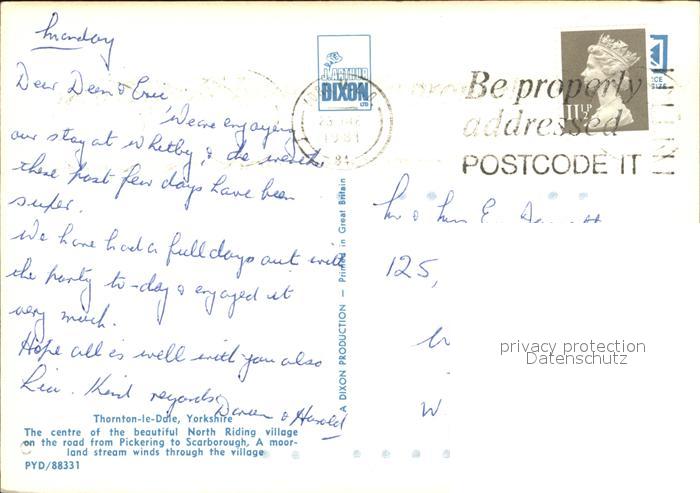 Monday
Dear Deem & Eric
We are enjoying
our stay at Whitby, & the weather
these past few days have been
super.
We have had a full days out with
the party to-day & enjoyed it
very much.
Hope all is well with you also
Kind regards
& Harold
Thornton-le-Dale, Yorkshire
The centre of the beautiful North Riding village
on the road from Pickering to Scarborough, A moor-
land stream winds through the village
PYD/88331
J. ARTHUR
DIXON
LTD
A DIXON PRODUCTION — Printed in Great Britain
1981
Be properly
addressed
POSTCODE IT
11½P
Mr & Mrs E.
125,
W
privacy protection
Datenschutz